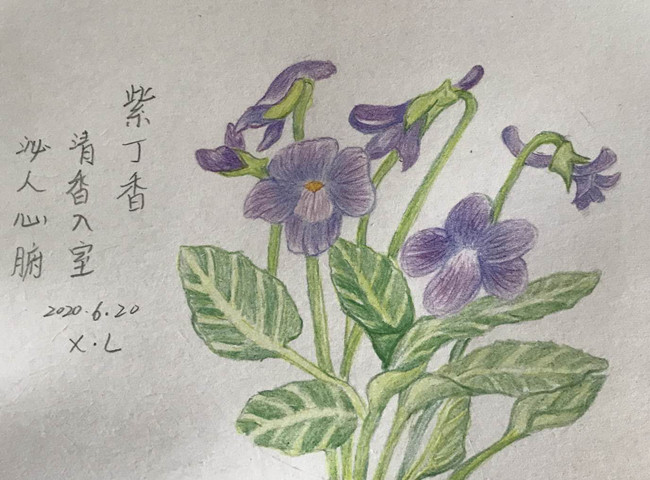 紫丁香
清香入室
沁人心腑
2020.6.20
X.L